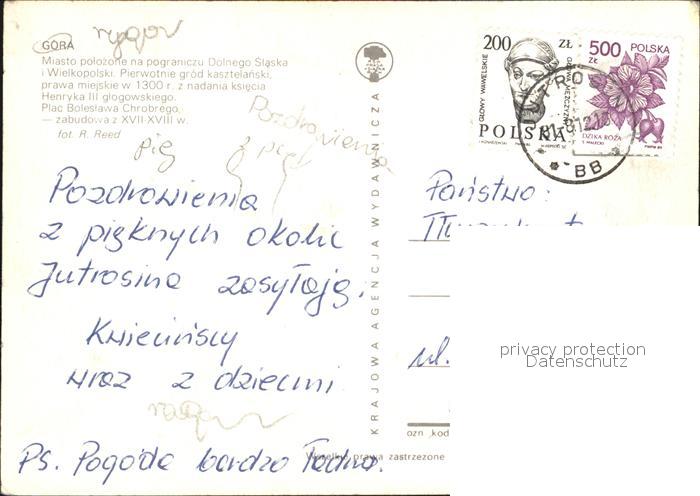 GÓRA
Miasto położone na pograniczu Dolnego Śląska
i Wielkopolski. Pierwotnie gród kasztelański,
prawa miejskie w 1300 r. z nadania księcia
Henryka III głogowskiego.
Plac Bolesława Chrobrego
— zabudowa z XVII-XVIII w.
fot. R. Reed
Pozdrowienia
z pię
pię
Pozdrowienia
z pięknych okolic
Jutrosina zasyłają.
Kwiecińscy
wraz z dziećmi
Ps. Pogoda bardzo ładna.
KRAJOWA AGENCJA WYDAWNICZA
Wszelkie prawa zastrzeżone
200 ZŁ
GŁOWY WAWELSKIE
GŁOWA MĘŻCZYZNY
POLSKA
500 ZŁ
POLSKA
DZIKA RÓŻA
S. MAŁECKI
JUTROSIN
BB
Państwo:
ul.
ozn. kod
privacy protection
Datenschutz